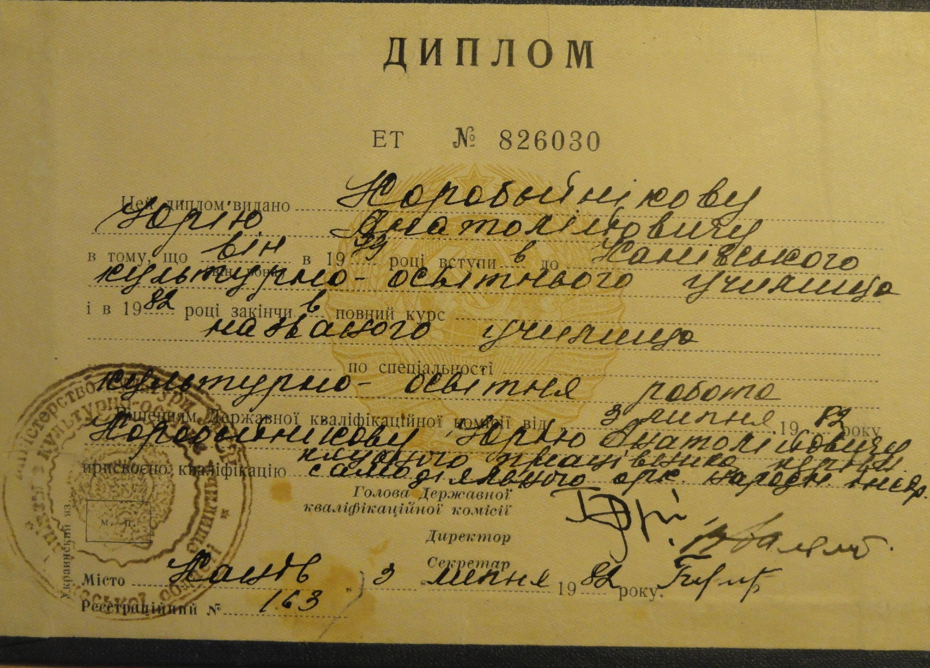 ДИПЛОМ
ЕТ № 826030
Цей диплом видано Коробейнікову
Юрію Анатолійовичу
в тому, що він в 1979 році вступив до Канівського
культурно-освітнього училища
і в 1982 році закінчив повний курс
названого училища
по спеціальності
культурно-освітня робота
Рішенням Державної кваліфікаційної комісії від 3 липня 1982 року
Коробейникову Юрію Анатолійовичу
присвоєно кваліфікацію клубного працівника, керівн.
самодіяльного орк. народн. інстр.
Голова Державної
кваліфікаційної комісії
Директор
Секретар
Місто Канів 3 липня 1982 року.
Реєстраційний № 163
м. п.